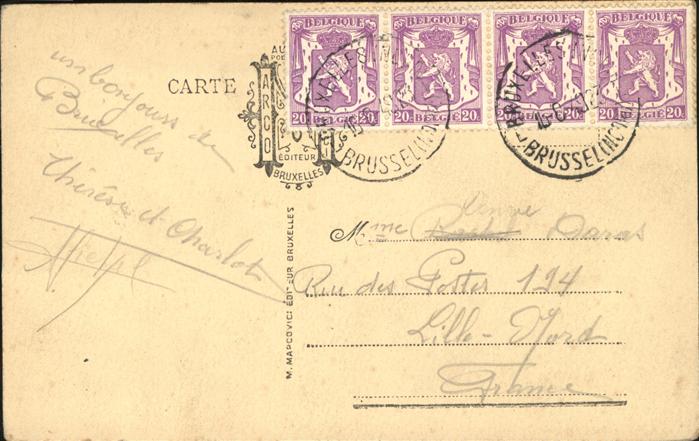 BELGIQUE BELGIQUE BELGIQUE BELGIQUE
BELGIE BELGIE BELGIE BELGIE
20c 20c 20c 20c 20c 20c 20c 20c
BRUSSEL
BRUSSEL
CARTE
ARCO
ÉDITEUR
BRUXELLES
un bonjour de
Bruxelles
Thérèse et Charlot
M. MARCOVICI ÉDITEUR BRUXELLES
Mme Daras
Rue des Postes 194
Lille-Nord
France